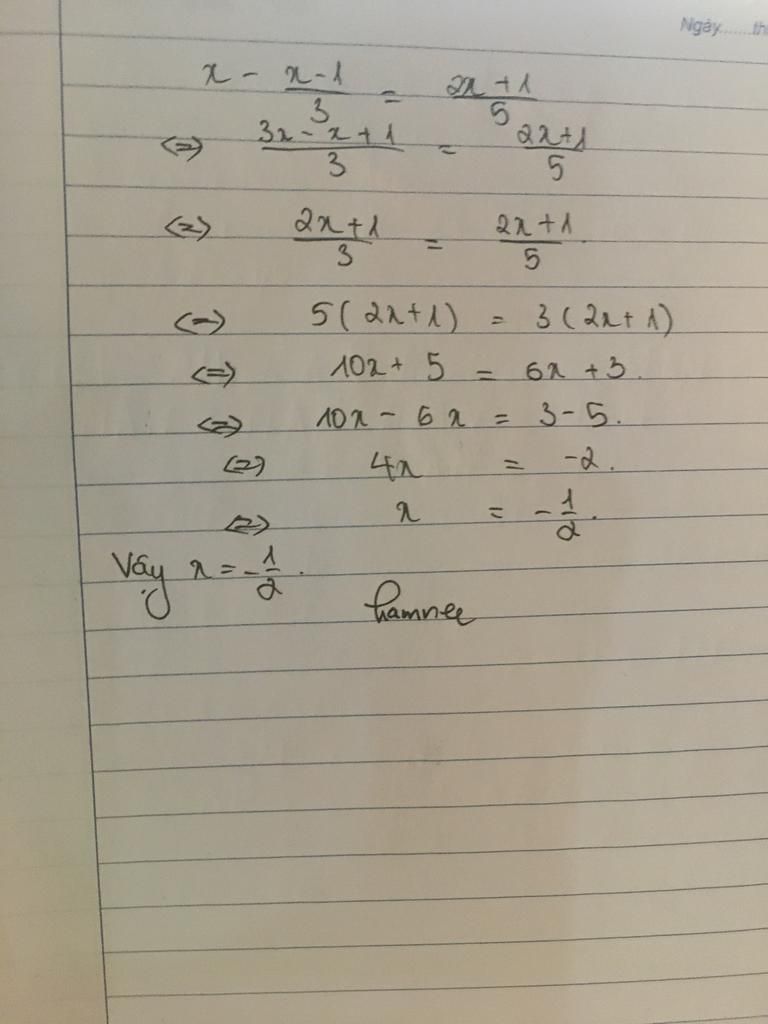 Ngày.......th
x - (x-1)/3 = (2x+1)/5
<=> (3x-x+1)/3 = (2x+1)/5
<=> (2x+1)/3 = (2x+1)/5.
<=> 5(2x+1) = 3(2x+1)
<=> 10x+5 = 6x+3.
<=> 10x-6x = 3-5.
<=> 4x = -2.
<=> x = -1/2.
Vậy x = -1/2.
hamnee